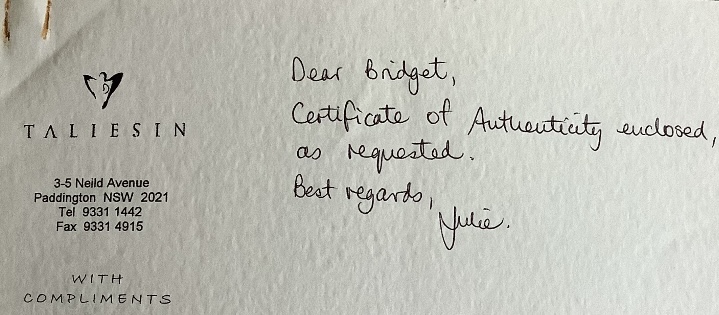 TALIESIN
3-5 Neild Avenue
Paddington NSW 2021
Tel 9331 1442
Fax 9331 4915
WITH
COMPLIMENTS
Dear Bridget,
Certificate of Authenticity enclosed,
as requested.
Best regards,
Julie.